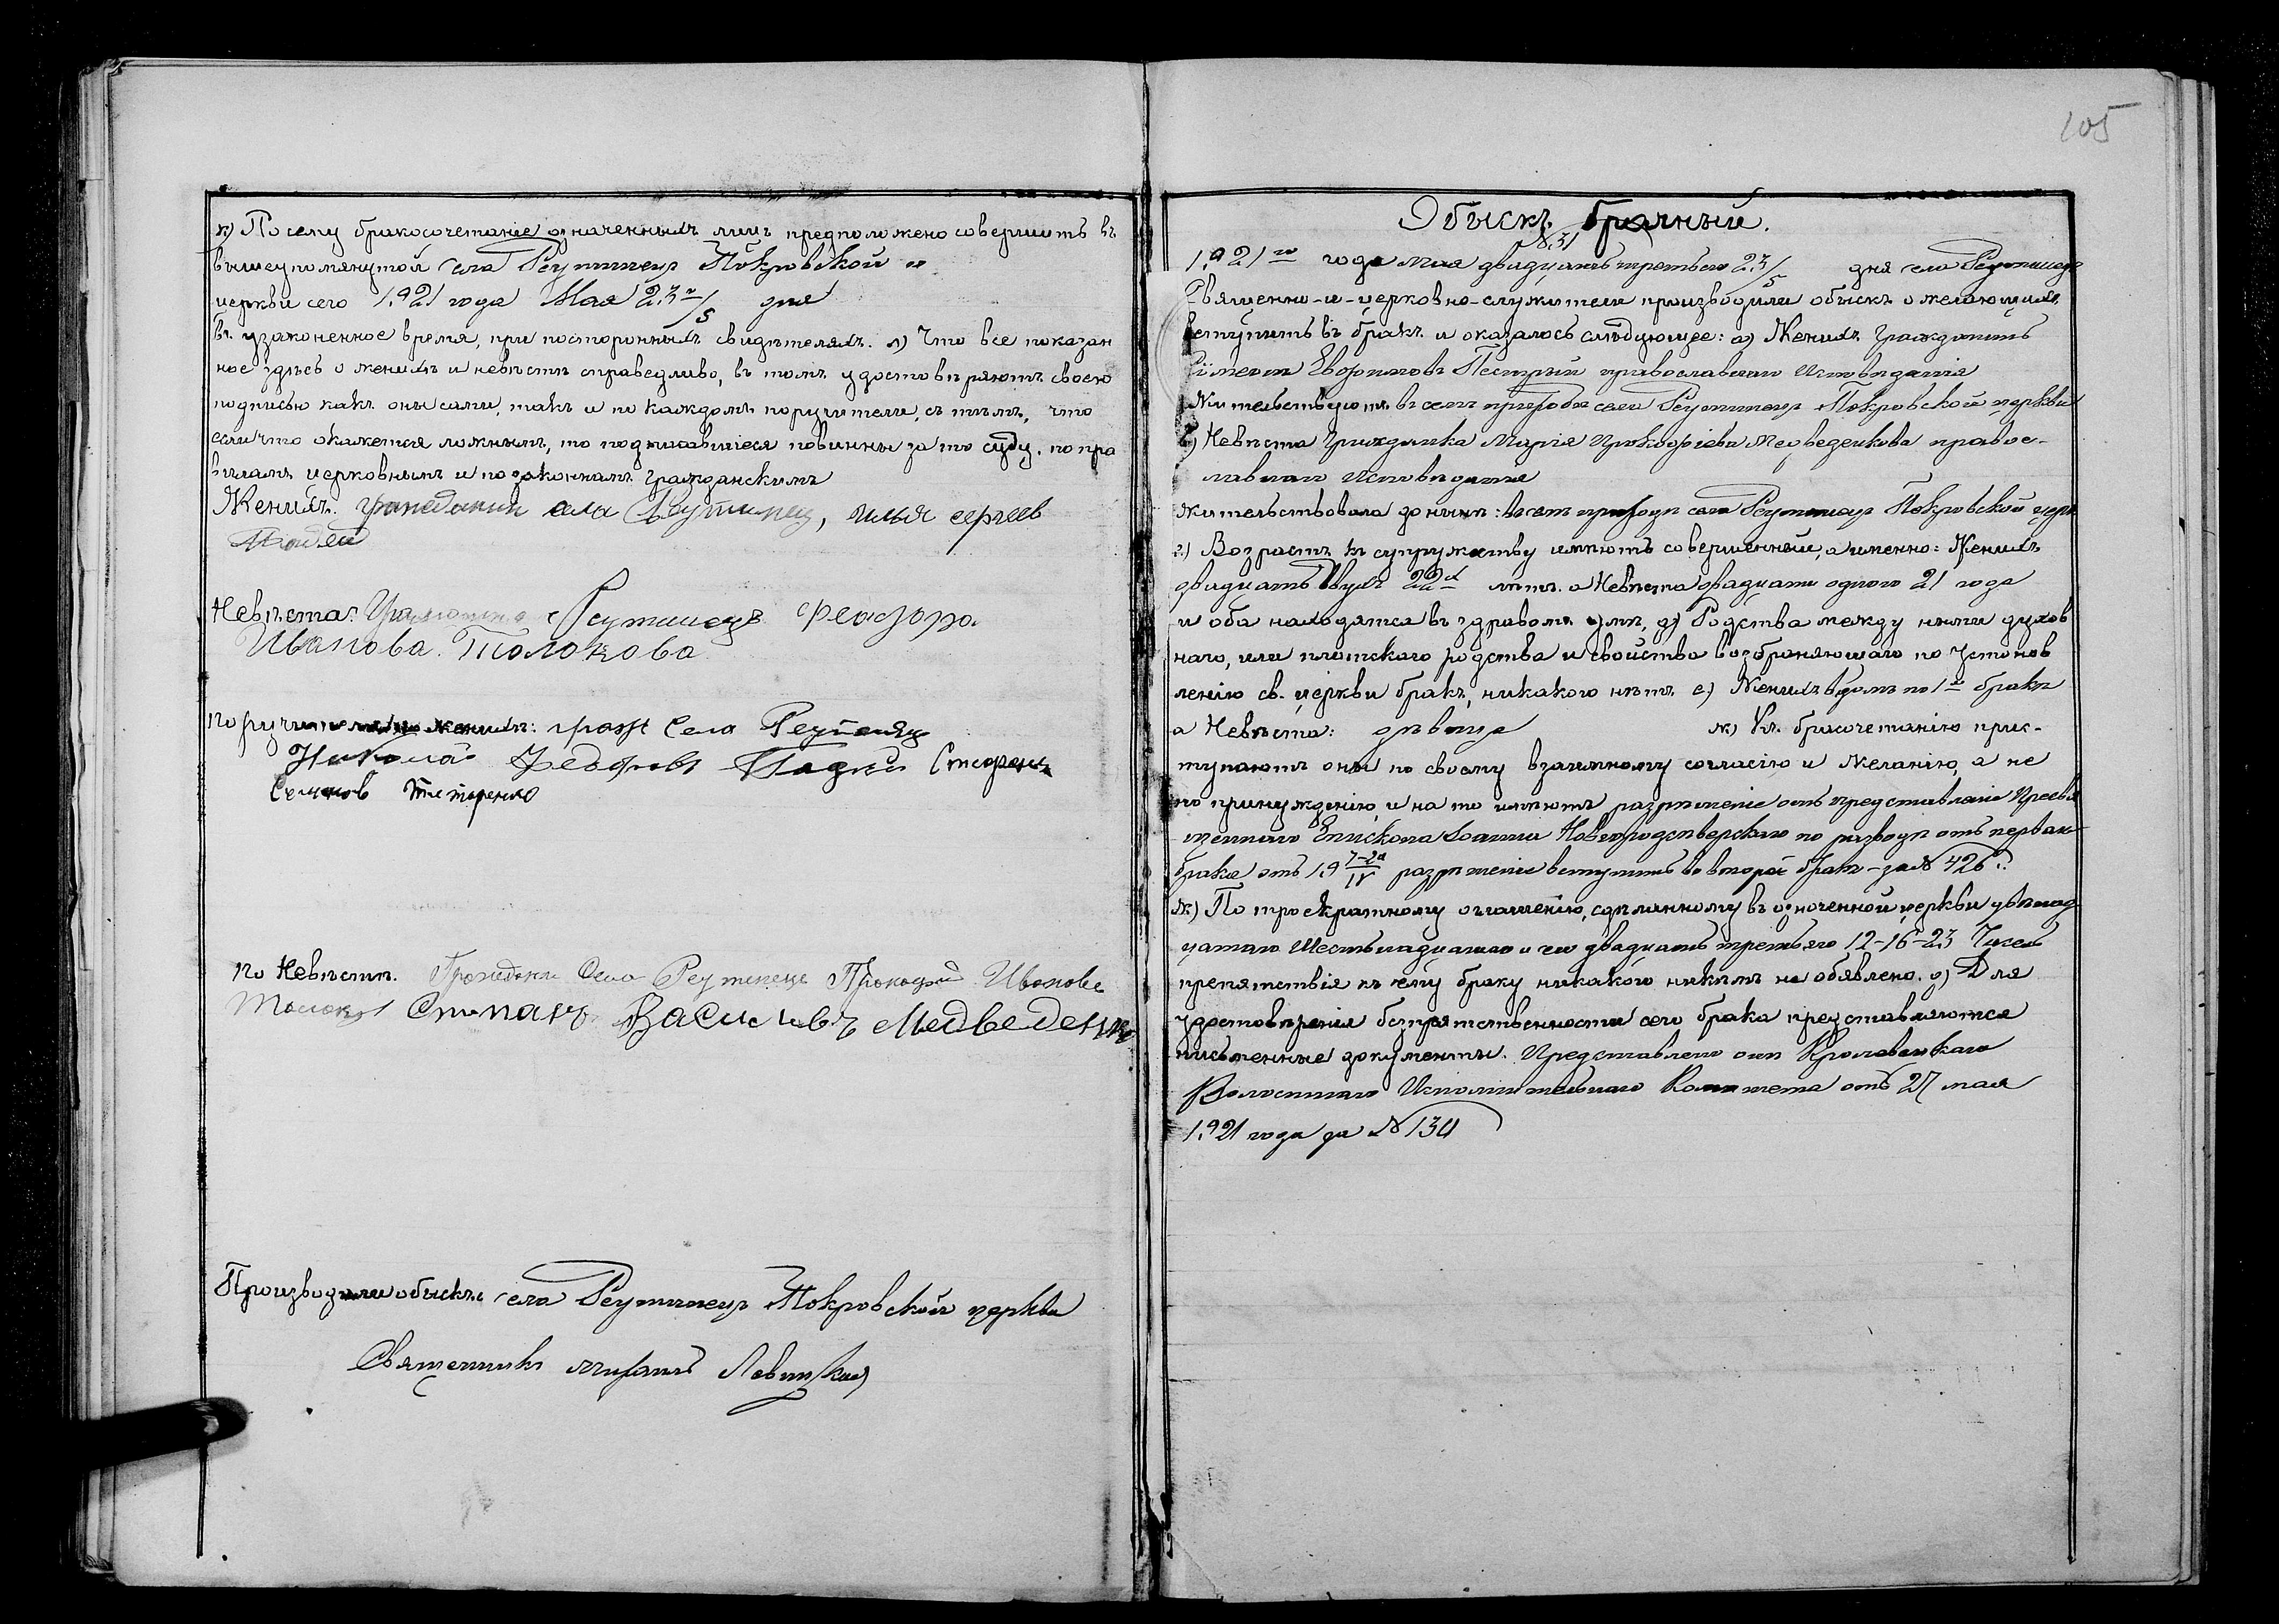 к) По сему бракосочетаніе означенныхъ лицъ предположено совершить въ
вышеупомянутой села Реутинецъ Покровской
церкви сего 1921 года Мая 23/5 дня
въ узаконенное время, при постороннихъ свидѣтеляхъ. л) Что все показан
ное здѣсь о женихѣ и невѣстѣ справедливо, въ томъ удостовѣряютъ своею
подписью какъ оны сами, такъ и по каждомъ поручители, съ тѣмъ, что
если что окажется ложнымъ, то подписавшіеся повинны за то суду, по пра
виламъ церковнымъ и по законнамъ гражданскимъ
Женихъ. гражданин села Реутинец, илья сергеев
Невѣста: Реутинецъ Феодора
Иванова Толокова
поручители по женихѣ: граж Села Реутинец
Николай Федоров
Семенов Титаренко
По Невѣстѣ. Гражданe Села Реутинець Прокофий Иванове
Степанъ Василивъ Медведенко
Производили обыскъ: села Реутинецъ Покровской церкви
Священникъ Левицкій
105
Обыскъ брачный.
№ 31
1921 го года мая двадцать третьего 23/5 дня села Реутинецъ
Священно-и-церковно-служители производили обыскъ о желающихъ
вступить въ бракъ и оказалось слѣдующее: а) Женихъ гражданинъ
Евфимовъ Пестрый православнаго исповѣданія
жительствуютъ въ семъ приходѣ села Реутинецъ Покровской церкви
б) Невѣста гражданка Марія Прокофіева Медведенкова правос-
лавнаго исповѣданія
жительствовала донынѣ: въ семъ приходѣ села Реутинецъ Покровской церк
г) Возрастъ къ супружеству имѣютъ совершенный, а именно: Женихъ
двадцать двухъ 22х лѣтъ. а Невѣста двадцати одного 21 года
и оба находятся въ здравомъ умѣ, д) Родства между ними духов
наго, или плотскаго родства и свойства возбраняющаго по установ
ленію св. церкви бракъ, никакого нѣтъ е) Женихъ вдовъ по 1м бракѣ
а Невѣста: дѣвица ж) Къ бракочетанію прис-
тупаютъ оны по своему взаимному согласію и желанію, а не
по принужденію, и на то имѣютъ разрѣшеніе отъ представленіе Преосвя
щеннаго Епископа Іоанна Новгородсѣверскаго по разводѣ отъ перваго
брака отъ 19 7-20/IV разрѣшеніе вступить во второй бракъ - за № 426.
ж) По троекратному оглашенію, сдѣланному въ означенной церкви двѣнад
цатаго Шестьнадцатаго и двадцать третьяго 12-16-23 Чисел
препятствія къ сему браку никакого никѣмъ не обявлено. з) Для
удостовѣренія безпрятственности сего брака представляются
письменные документы. Представлено отъ Кролевецкаго
Волостнаго Исполнительнаго Комитета отъ 27 мая
1921 года за № 134